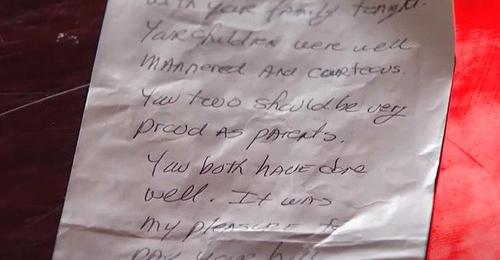 with your family tonight.
Your children were well
mannered and courteous.
You two should be very
proud as parents.
You both have done
well. It was
my pleasure to
pay your bill